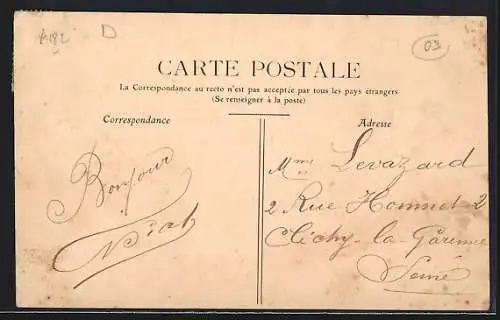 A182 D
03
CARTE POSTALE
La Correspondance au recto n'est pas acceptée par tous les pays étrangers
(Se renseigner à la poste)
Correspondance
Adresse
Bonjour
Mme Levazard
2 Rue Hommet 2
Clichy-la-Garenne
Seine